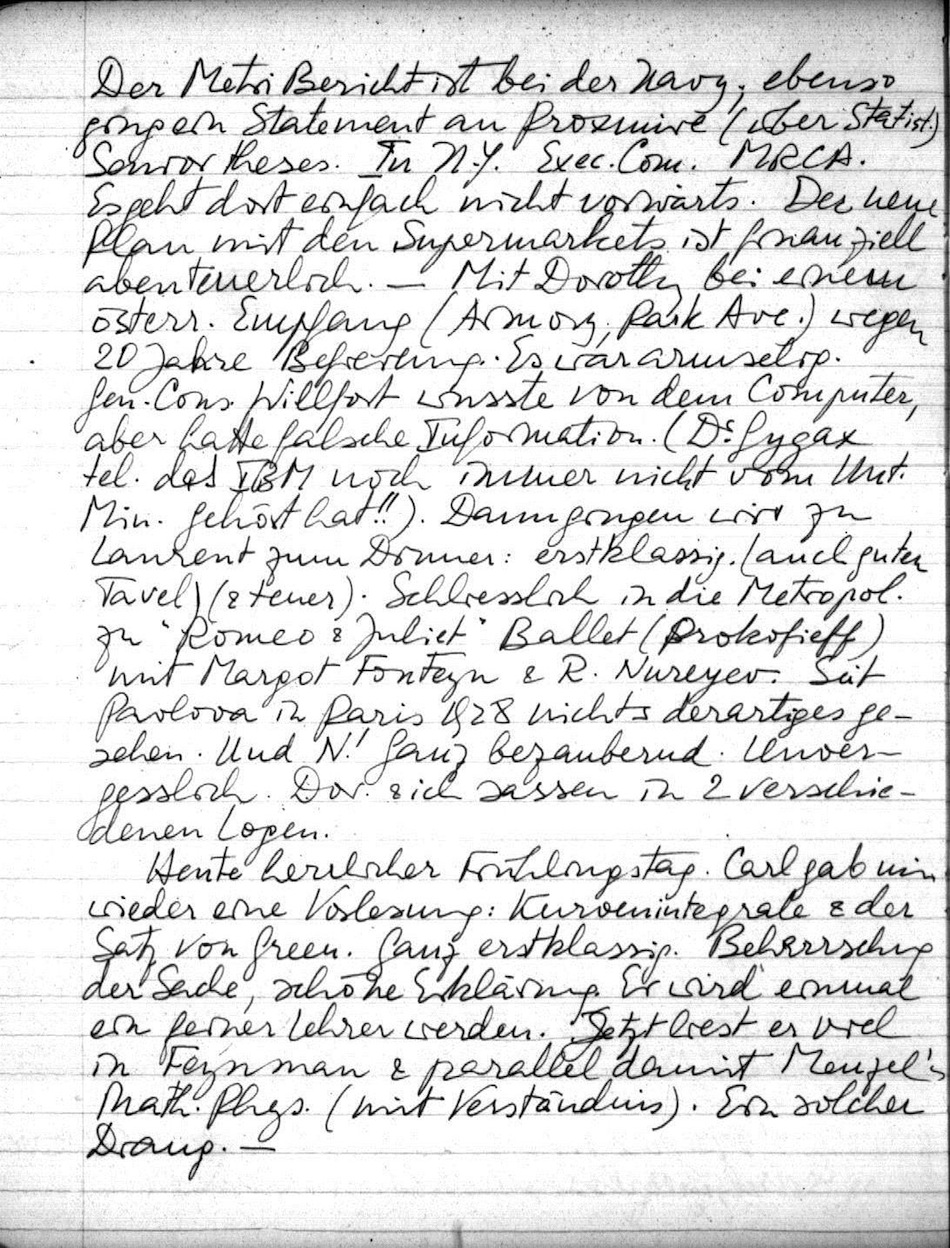 Der Metri Bericht ist bei der Navy, ebenso
ging ein Statement an Proxmire (über Statist.)
Senior theses. In N.Y. Exec. Com. MRCA.
Es geht dort einfach nicht vorwärts. Der neue
Plan mit den Supermarkets ist finanziell
abenteuerlich. — Mit Dorothy bei einem
österr. Empfang (Armory, Park Ave.) wegen
20 Jahre Befreiung. Es war armselig.
Gen. Cons. Willfort wusste von dem Computer,
aber hatte falsche Information. (Dr. Gygax
tel. das IBM noch immer nicht vom Unt.
Min. gehört hat!!). Dann gingen wir zu
Laurent zum Dinner: erstklassig. (auch guten
Tavel) (& teuer). Schliesslich in die Metropol.
zu "Romeo & Juliet" Ballet (Prokofieff)
mit Margot Fonteyn & R. Nureyev. Seit
Pavlova in Paris 1928 nichts derartiges ge-
sehen. Und N.! Ganz bezaubernd. Unver-
gesslich. Dor. & ich sassen in 2 verschie-
denen Logen.
Heute herrlicher Frühlingstag. Carl gab mir
wieder eine Vorlesung: Kurvenintegrale & der
Satz von Green. Ganz erstklassig. Beherrschung
der Sache, schöne Erklärung. Er wird einmal
ein feiner Lehrer werden. Jetzt liest er viel
in Feynman & parallel damit Menzel's
Math. Phys. (mit Verständnis). Ein solcher
Drang. —